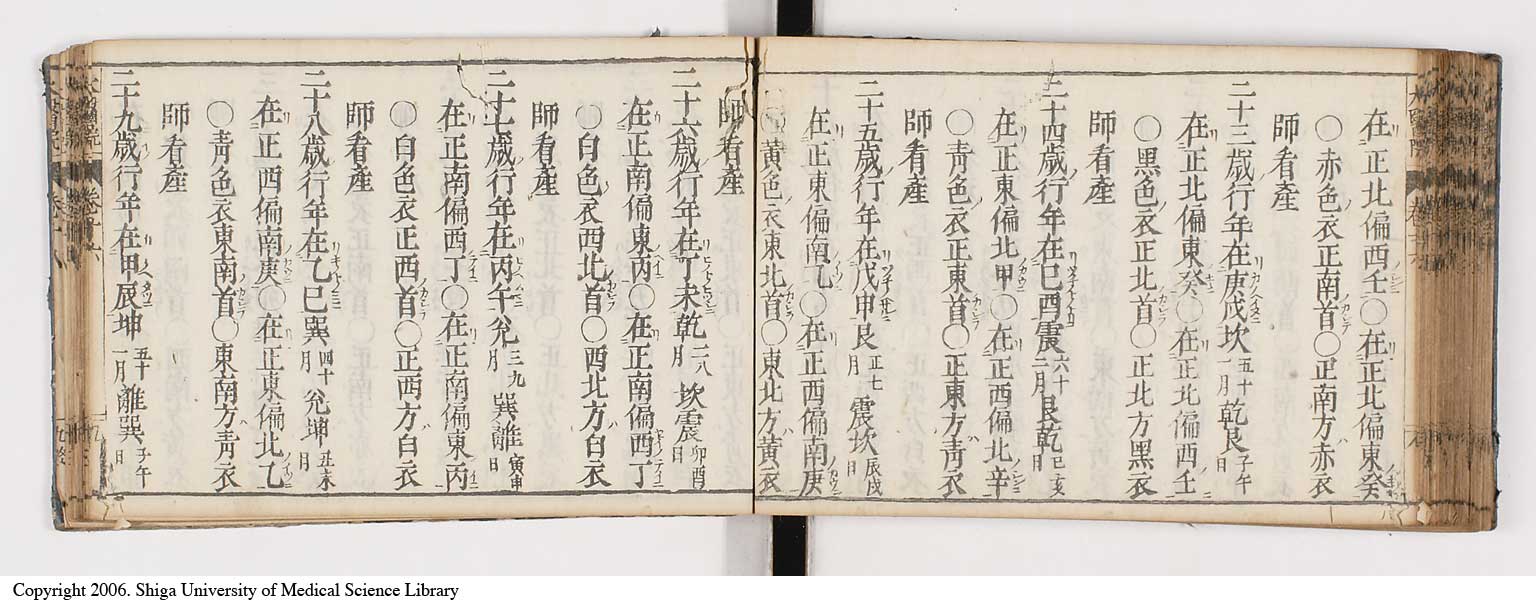 在正北偏西壬〇在正北偏東癸
〇赤色衣正南首〇正南方赤衣
師看產
二十三歲行年在庚戌坎五十一月乾艮子午日
在正北偏東癸〇在正北偏西壬
〇黑色衣正北首〇正北方黑衣
師看產
二十四歲行年在己酉震六十二月艮乾巳亥日
在正東偏北甲〇在正西偏北辛
〇青色衣正東首〇正東方青衣
師看產
二十五歲行年在戊申艮正七月震坎辰戌日
在正東偏南乙〇在正西偏南庚
〇黃色衣東北首〇東北方黃衣
師看產
二十六歲行年在丁未乾二八月坎震卯酉日
在正南偏東丙〇在正南偏西丁
〇白色衣西北首〇西北方白衣
師看產
二十七歲行年在丙午兌三九月巽離寅申日
在正南偏西丁〇在正南偏東丙
〇白色衣正西首〇正西方白衣
師看產
二十八歲行年在乙巳巽四十月兌坤丑未日
在正西偏南庚〇在正東偏北乙
〇青色衣東南首〇東南方青衣
師看產
二十九歲行年在甲辰坤五十一月離巽子午日
Copyright 2006. Shiga University of Medical Science Library